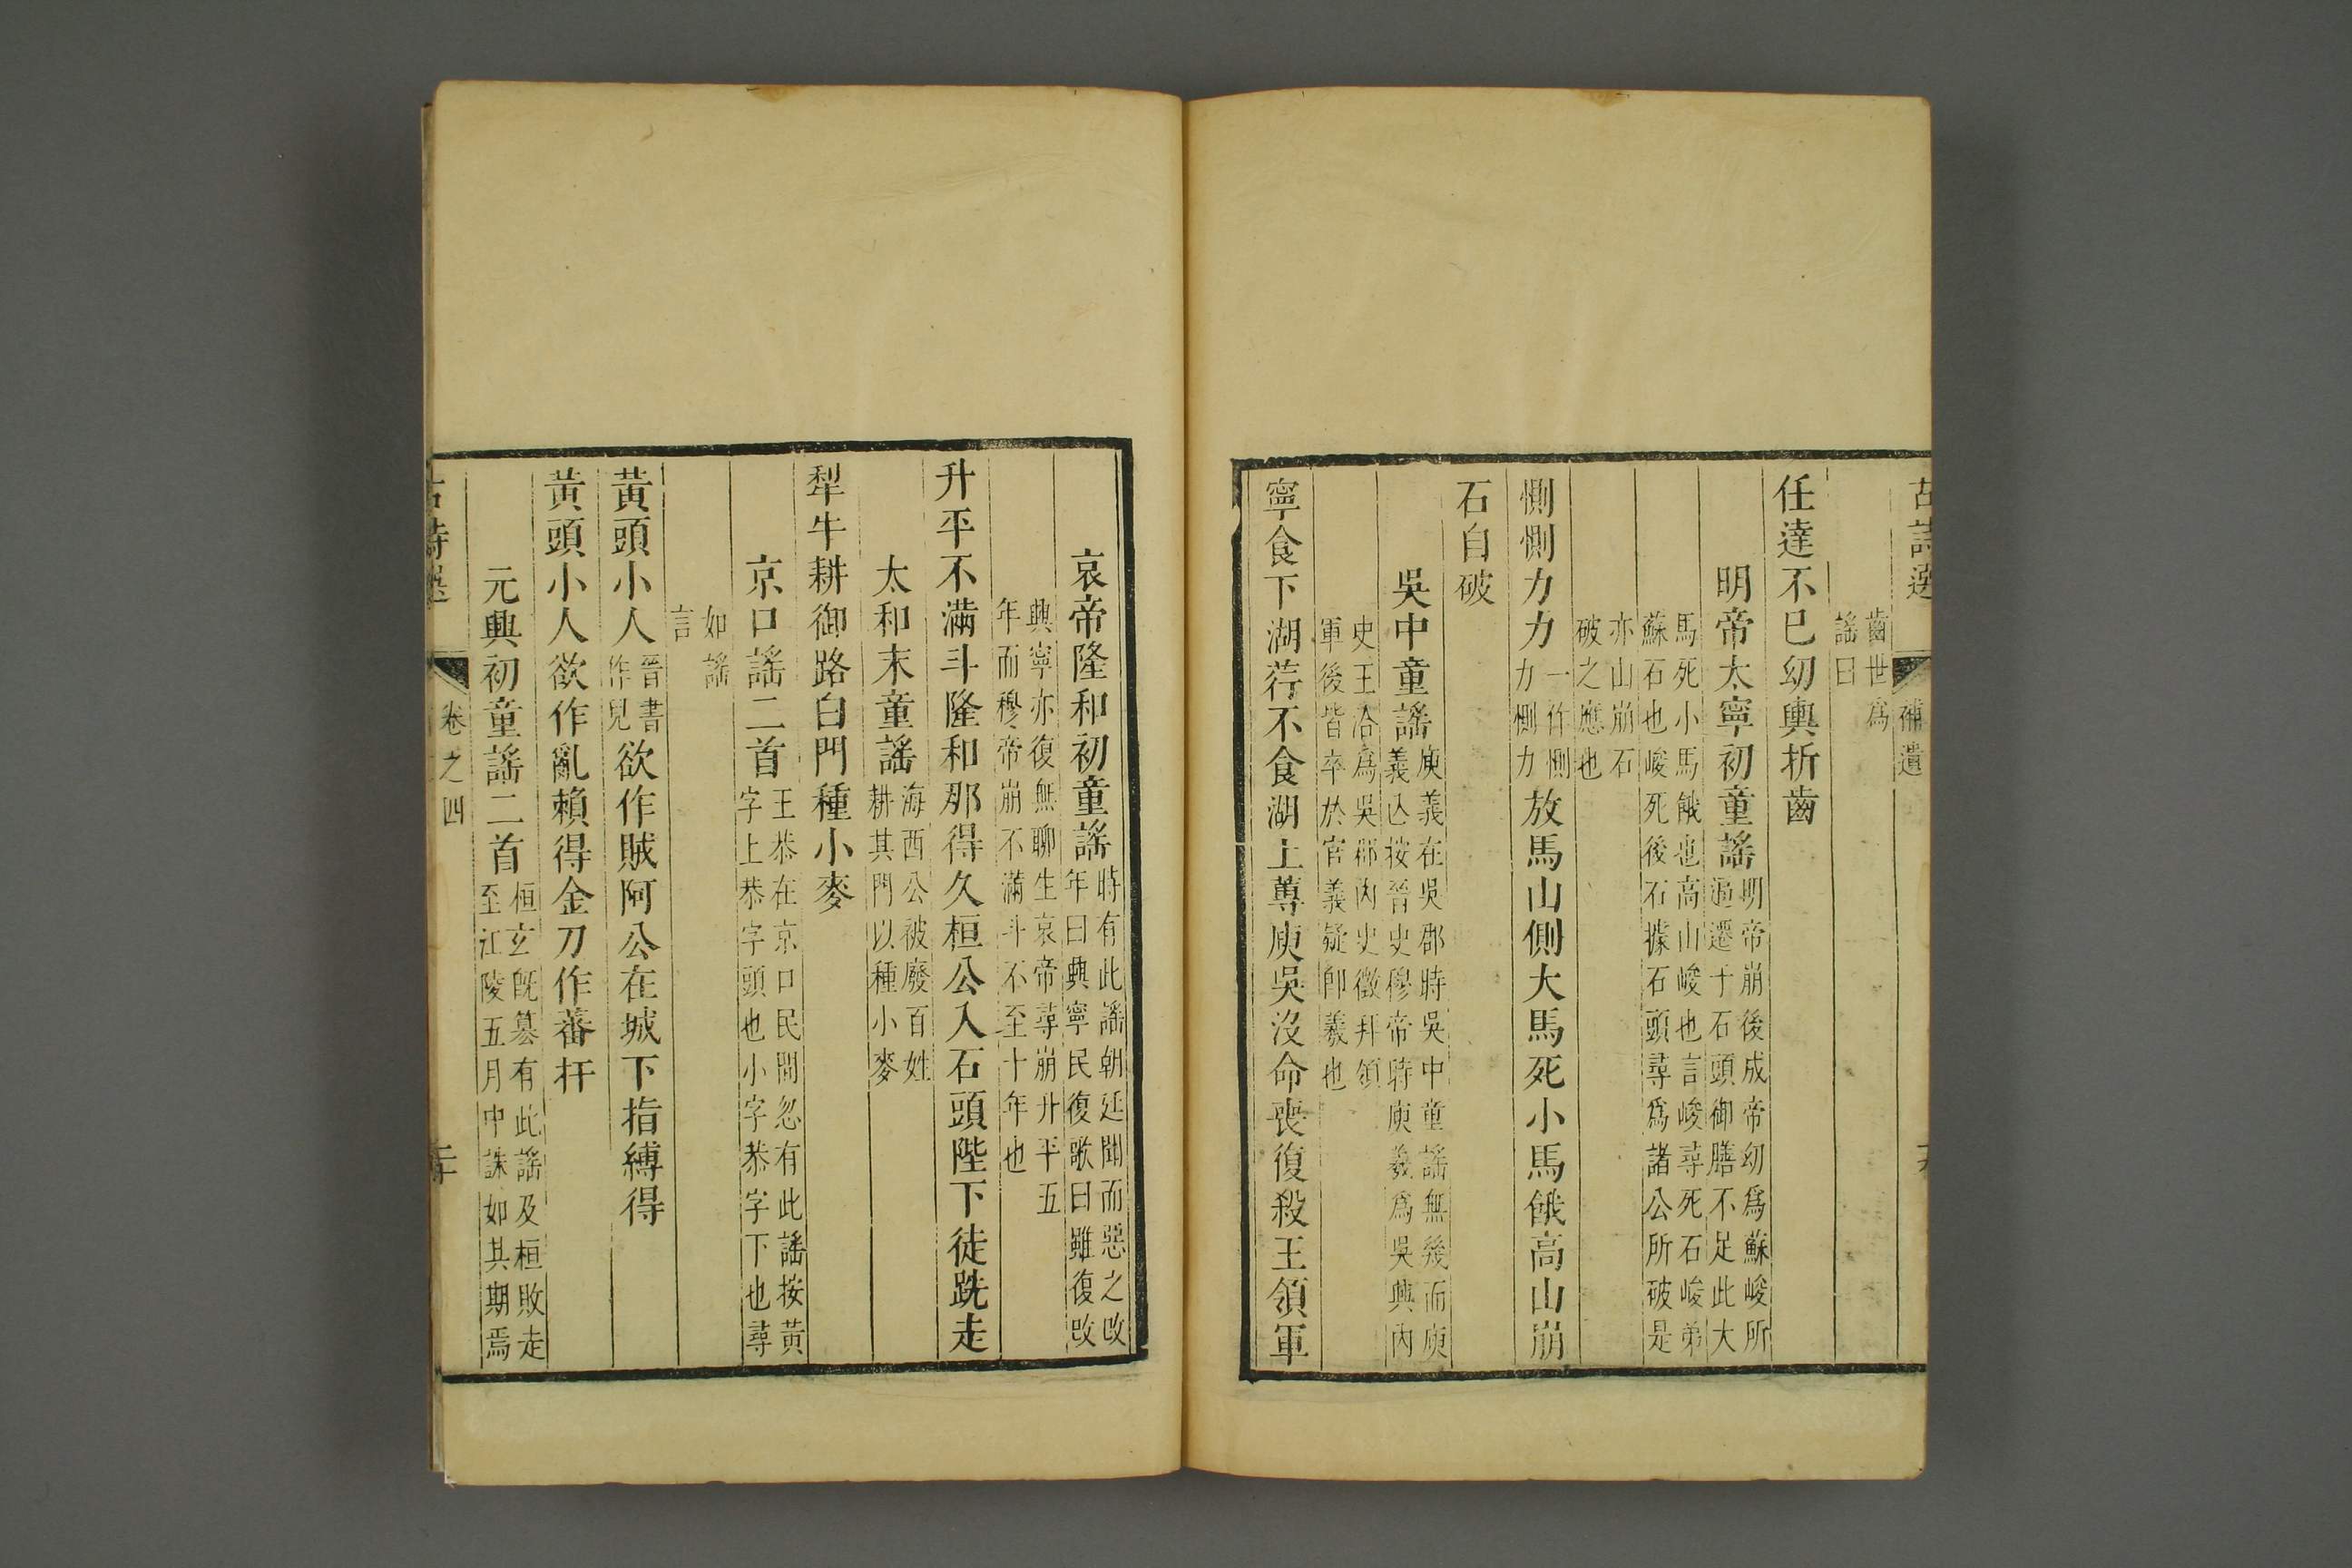 古詩選 補遺
齒世為
謠曰
任達不已幼輿折齒
明帝太寧初童謠明帝崩後成帝幼爲蘇峻所
逼遷于石頭御膳不足此大
馬死小馬餓也高山峻也言峻尋死石峻弟
蘇石也峻死後石據石頭尋爲諸公所破是
亦山崩石
破之應也
惻惻力力一作惻
力惻力放馬山側大馬死小馬餓高山崩
石自破
吳中童謠庾義在吳郡時吳中童謠無幾而庾
義亾按晉史穆帝時庾羲爲吳興內
史王洽爲吳郡內史徵拜領
軍後皆卒於官義疑卽羲也
寧食下湖荇不食湖上蓴庾吳沒命喪復殺王領軍
哀帝隆和初童謠時有此謠朝廷聞而惡之改
年曰興寧民復歌曰雖復改
興寧亦復無聊生哀帝尋崩升平五
年而穆帝崩不滿斗不至十年也
升平不滿斗隆和那得久桓公入石頭陛下徒跣走
太和末童謠海西公被廢百姓
耕其門以種小麥
犁牛耕御路白門種小麥
京口謠二首王恭在京口民間忽有此謠按黃
字上恭字頭也小字恭字下也尋
如謠
言
黃頭小人晉書
作兒欲作賊阿公在城下指縛得
黃頭小人欲作亂賴得金刀作蕃扞
元興初童謠二首桓玄旣篡有此謠及桓敗走
至江陵五月中誅如其期焉
古詩選 卷之四 二十